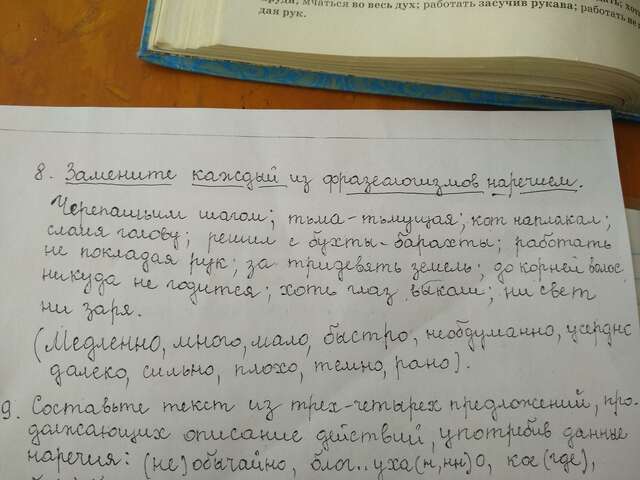 пруди; мчаться во весь дух; работать засучив рукава; работать не
дая рук.
8. Замените каждый из фразеологизмов наречием.
Черепашьим шагом; тьма-тьмущая; кот наплакал;
сломя голову; решил с бухты-барахты; работать
не покладая рук; за тридевять земель; до корней волос
никуда не годится; хоть глаз выколи; ни свет
ни заря.
(Медленно, много, мало, быстро, необдуманно, усердно
далеко, сильно, плохо, темно, рано).
9. Составьте текст из трех-четырех предложений, про-
должающих описание действий, употребив данные
наречия: (не)обычайно, благ..уха(н,нн)о, кое(где),